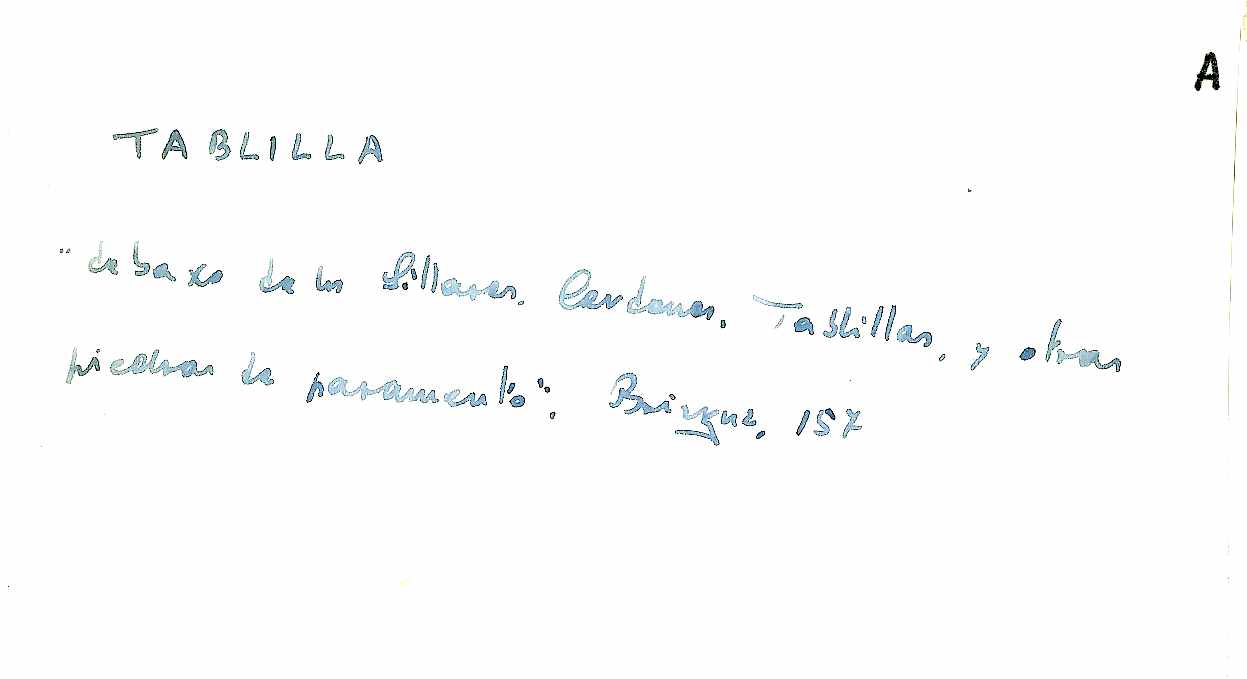 A
TABLILLA
"debaxo de los Sillares, Cerdones, Tablillas, y otras
piedras de paramento". Brizguz, 157